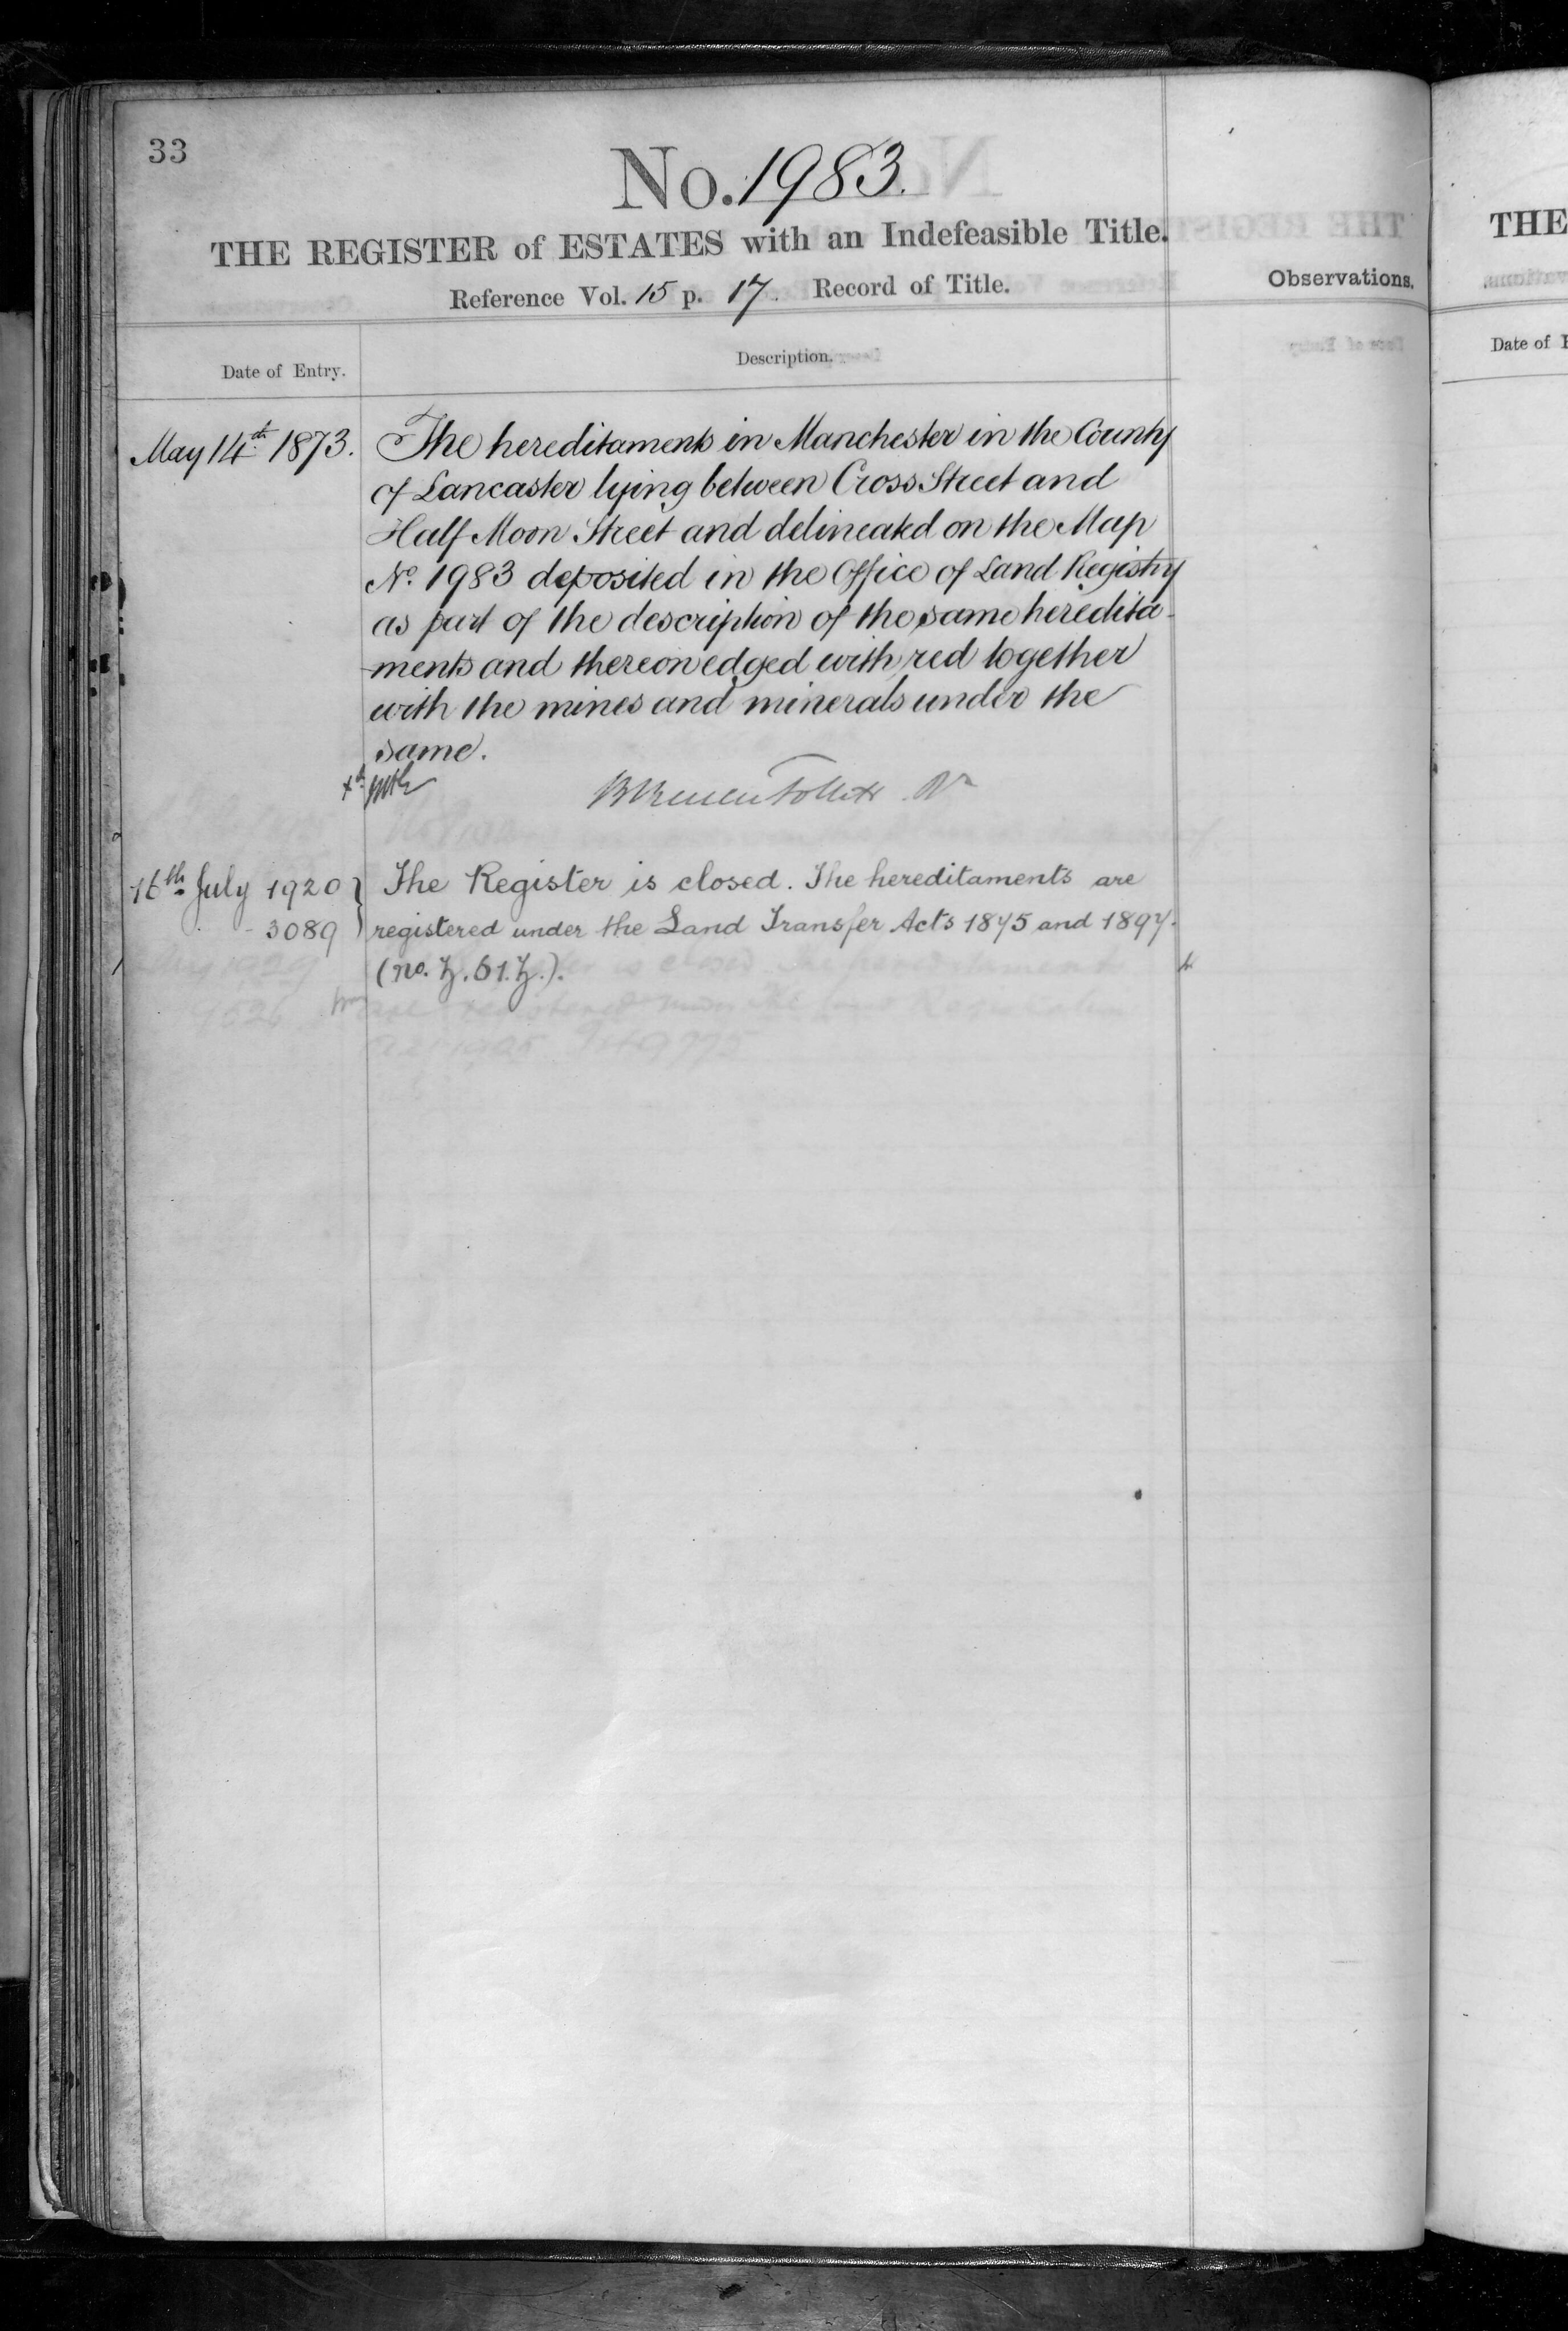 33
No. 1983.
THE REGISTER of ESTATES with an Indefeasible Title.
Reference Vol. 15 p. 17. Record of Title.
Observations.
Date of Entry.
Description.
May 14th 1873.
The hereditaments in Manchester in the County
of Lancaster lying between Cross Street and
Half Moon Street and delineated on the Map
No. 1983 deposited in the Office of Land Registry
as part of the description of the same heredita-
-ments and thereon edged with red together
with the mines and minerals under the
same.
16th July 1920
3089
The Register is closed. The hereditaments are
registered under the Land Transfer Acts 1875 and 1897.
THE
Date of